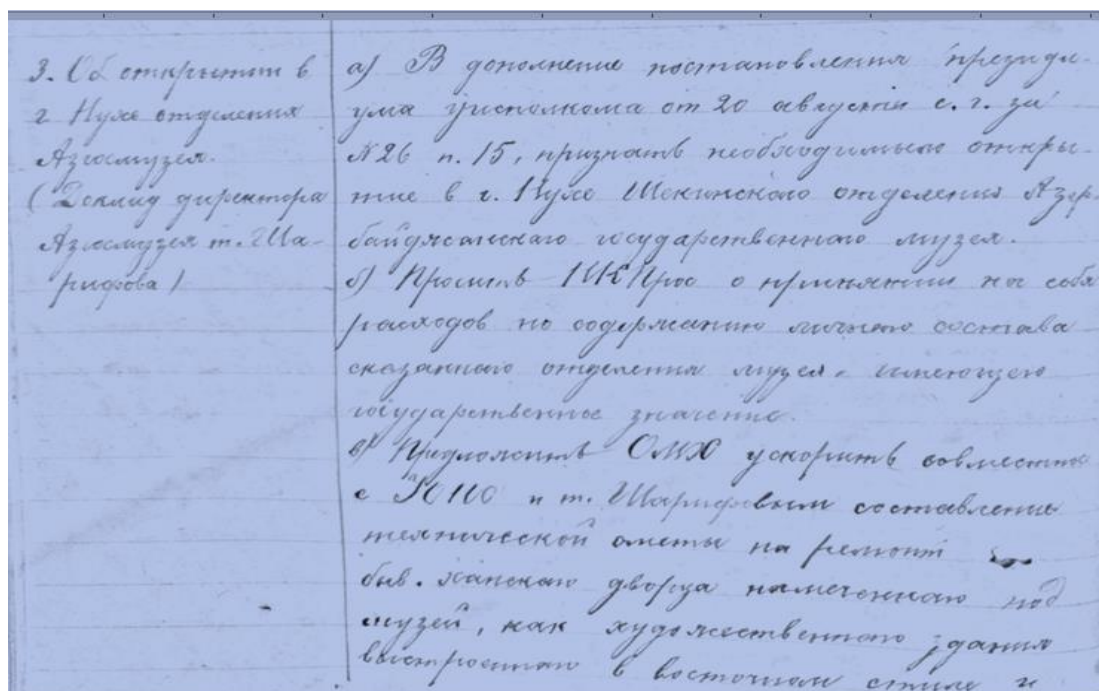 3. Об открытии в
г Нухе отделения
Азгосмузея.
(Доклад директора
Азгосмузея т. Ша-
рифова)
а) В дополнение постановления президи-
ума уисполкома от 20 августа с. г. за
№26 п. 15, признать необходимым откры-
тие в г. Нухе Шекинского отделения Азер-
байджанскаго государственнаго музея.
б) Просить НКПрос о принятии на себя
расходов по содержанию личного состава
сказаннаго отделения музея, имеющего
государственное значение.
в) Предложить ОМХ ускорить совместно
с и т. Шарифовым составление
технической сметы на ремонт
быв. ханскаго дворца намеченнаго под
музей, как художественного здания
выстроеннаго в восточном стиле и